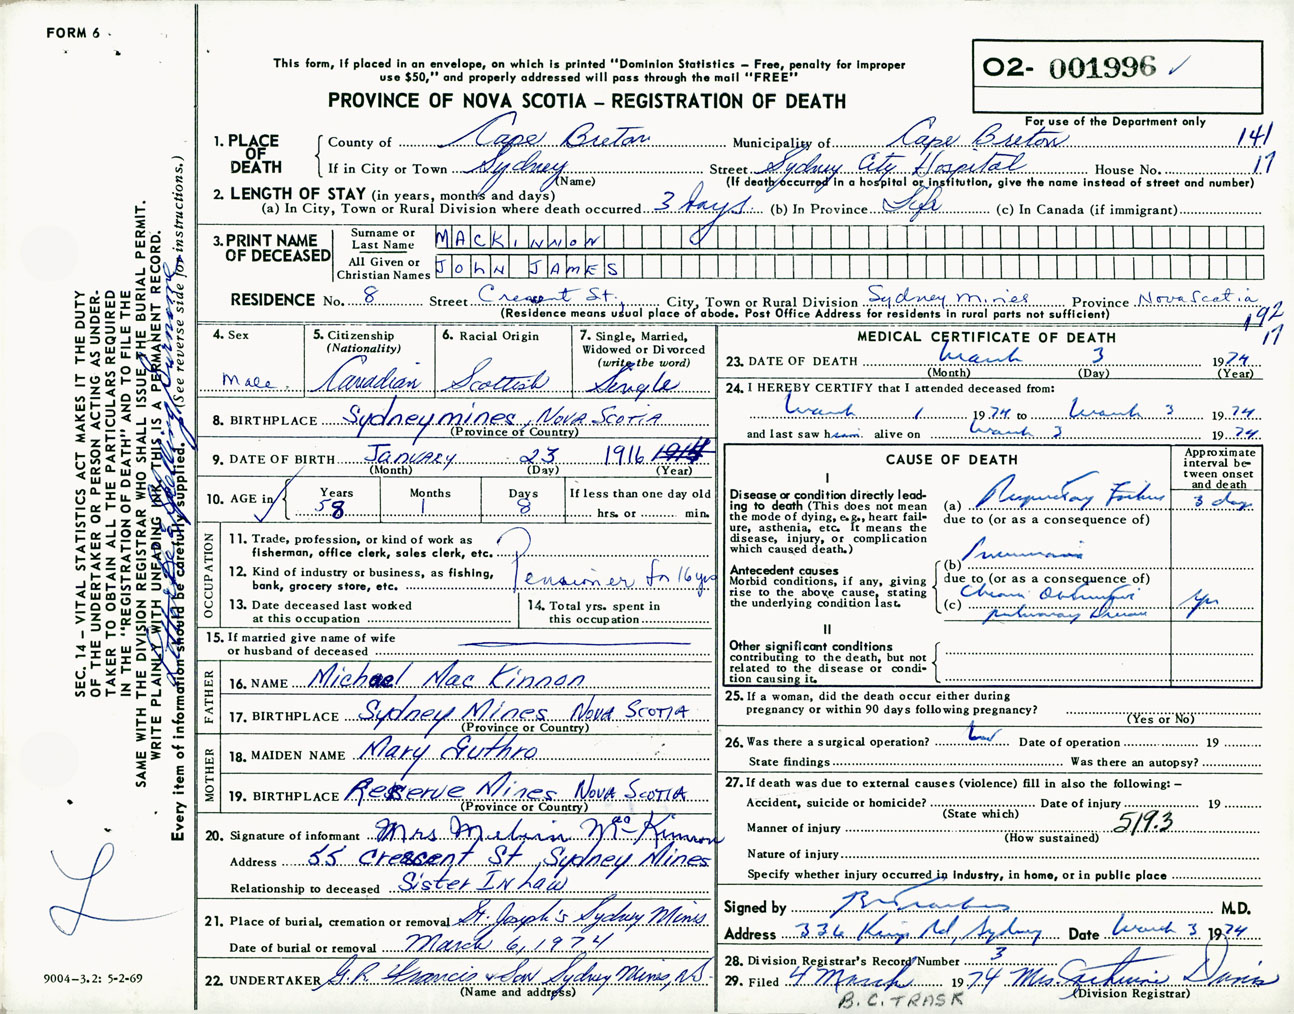 FORM 6
This form, if placed in an envelope, on which is printed "Dominion Statistics – Free, penalty for improper
use $50," and properly addressed will pass through the mail "FREE"
PROVINCE OF NOVA SCOTIA – REGISTRATION OF DEATH
O2- 001996 ✓
For use of the Department only
1. PLACE OF DEATH
County of Cape Breton Municipality of Cape Breton 141
If in City or Town Sydney Street Sydney City Hospital House No. 17
(Name) (If death occurred in a hospital or institution, give the name instead of street and number)
2. LENGTH OF STAY (in years, months and days)
(a) In City, Town or Rural Division where death occurred 3 days (b) In Province Life (c) In Canada (if immigrant)
3. PRINT NAME OF DECEASED
Surname or Last Name MACKINNON
All Given or Christian Names JOHN JAMES
RESIDENCE No. 8 Street Crescent St., City, Town or Rural Division Sydney Mines Province Nova Scotia
(Residence means usual place of abode. Post Office Address for residents in rural parts not sufficient)
192
17
4. Sex Male
5. Citizenship (Nationality) Canadian
6. Racial Origin Scottish
7. Single, Married, Widowed or Divorced (write the word) Single
8. BIRTHPLACE Sydney mines, NOVA SCOTIA
(Province or Country)
9. DATE OF BIRTH JANUARY 23 1916
(Month) (Day) (Year)
10. AGE in Years 58 Months 1 Days 8 If less than one day old hrs. or min.
OCCUPATION
11. Trade, profession, or kind of work as fisherman, office clerk, sales clerk, etc.
12. Kind of industry or business, as fishing, bank, grocery store, etc. Pensioner for 16 yrs
13. Date deceased last worked at this occupation
14. Total yrs. spent in this occupation
15. If married give name of wife or husband of deceased
FATHER
16. NAME Michael Mac Kinnon
17. BIRTHPLACE Sydney Mines NOVA SCOTIA
(Province or Country)
MOTHER
18. MAIDEN NAME Mary Guthro
19. BIRTHPLACE Reserve Mines NOVA SCOTIA
(Province or Country)
20. Signature of informant Mrs Melvin MacKinnon
Address 55 Crescent St, Sydney Mines
Relationship to deceased Sister In Law
21. Place of burial, cremation or removal St. Joseph's Sydney Mines
Date of burial or removal March 6, 1974
22. UNDERTAKER G.R. Francis & Son Sydney Mines, N.S.
(Name and address)
MEDICAL CERTIFICATE OF DEATH
23. DATE OF DEATH March 3 1974
(Month) (Day) (Year)
24. I HEREBY CERTIFY that I attended deceased from:
March 1 1974 to March 3 1974
and last saw him alive on March 3 1974
CAUSE OF DEATH
Approximate interval between onset and death
I
Disease or condition directly leading to death (This does not mean the mode of dying, e.g., heart failure, asthenia, etc. It means the disease, injury, or complication which caused death.)
(a) Respiratory Failure 3 days
due to (or as a consequence of)
Antecedent causes
Morbid conditions, if any, giving rise to the above cause, stating the underlying condition last.
(b) Pneumonia
due to (or as a consequence of)
(c) Chronic Obstructive pulmonary Disease yrs
II
Other significant conditions
contributing to the death, but not related to the disease or condition causing it.
25. If a woman, did the death occur either during pregnancy or within 90 days following pregnancy?
(Yes or No)
26. Was there a surgical operation? Date of operation 19
State findings Was there an autopsy?
27. If death was due to external causes (violence) fill in also the following: –
Accident, suicide or homicide? Date of injury 19
(State which)
Manner of injury 519.3
(How sustained)
Nature of injury
Specify whether injury occurred in industry, in home, or in public place
Signed by M.D.
Address 336 Kings Rd, Sydney Date March 3 1974
28. Division Registrar's Record Number 3
29. Filed 4 March 1974 Mrs. Catherine Davis
(Division Registrar)
B.C. TRASK
SEC. 14 – VITAL STATISTICS ACT MAKES IT THE DUTY
OF THE UNDERTAKER OR PERSON ACTING AS UNDER-
TAKER TO OBTAIN ALL THE PARTICULARS REQUIRED
IN THE "REGISTRATION OF DEATH" AND TO FILE THE
SAME WITH THE DIVISION REGISTRAR WHO SHALL ISSUE THE BURIAL PERMIT.
WRITE PLAINLY WITH UNFADING INK. THIS IS A PERMANENT RECORD.
Every item of information should be carefully supplied. (See reverse side for instructions.)
9004-3.2: 5-2-69